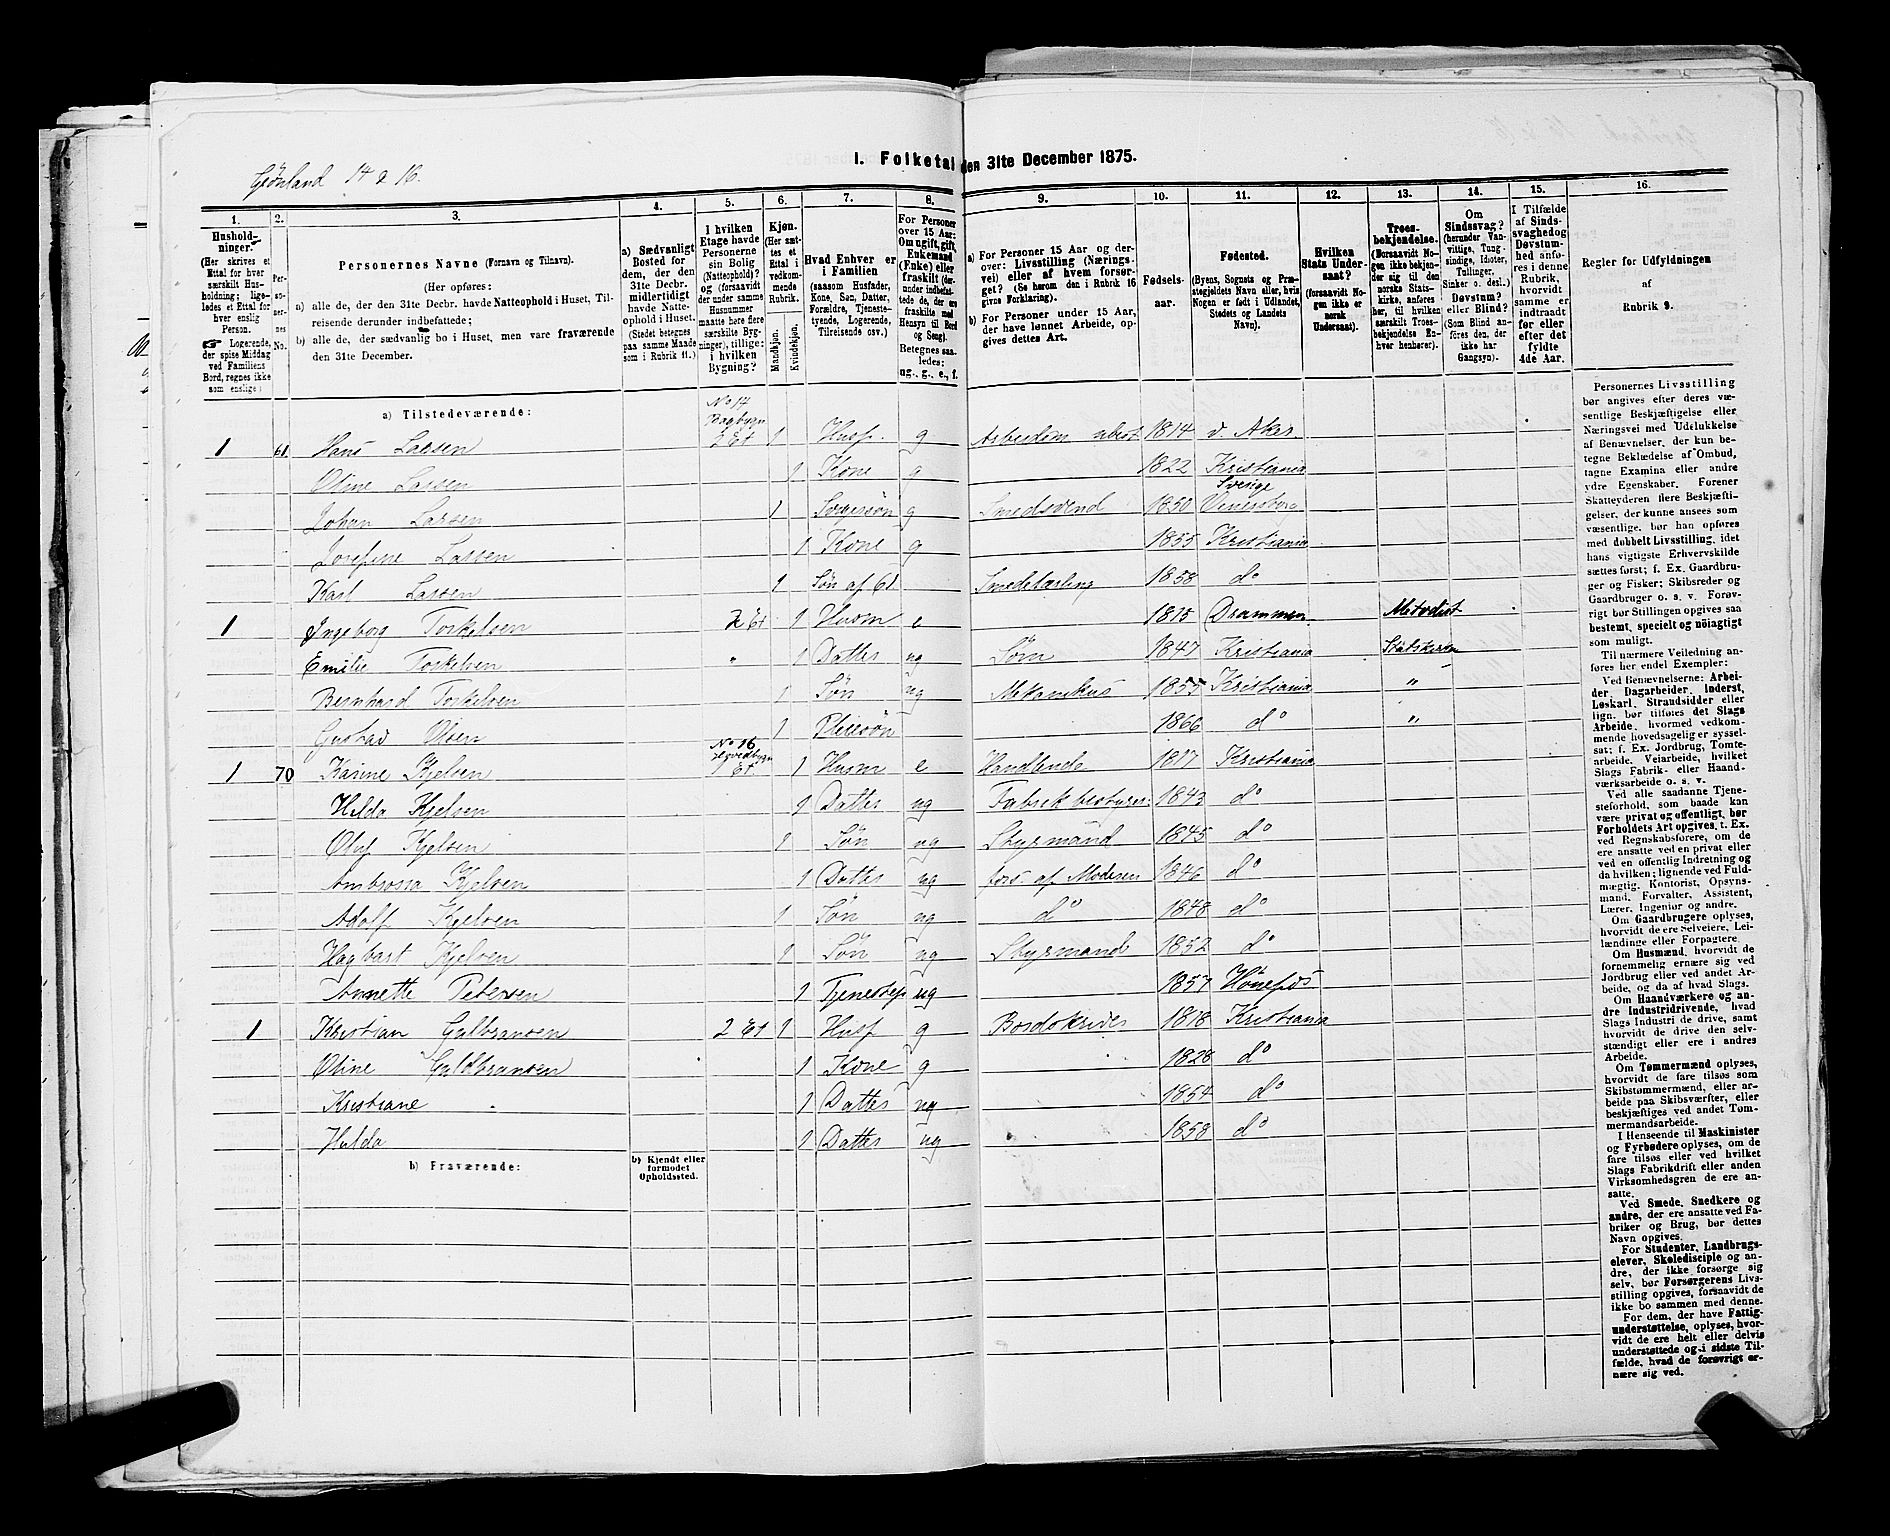 Grønland 14 & 16.
I. Folketal den 31te December 1875.
1. 2. 3. 4. 5. 6. 7. 8. 9. 10. 11. 12. 13. 14. 15. 16.
Husholdninger.
(Her skrives et Ettal for hver særskilt Husholdning; ligeledes et Ettal for hver enslig Person.
☞ Logerende, der spise Middag ved Familiens Bord, regnes ikke som enslige.)
Personernes No.
Personernes Navne (Fornavn og Tilnavn).
(Her opføres:
a) alle de, der den 31te Decbr. havde Natteophold i Huset, Tilreisende derunder indbefattede;
b) alle de, der sædvanlig bo i Huset, men vare fraværende den 31te December.
a) Sædvanligt Bosted for dem, der den 31te Decbr. midlertidigt havde Natteophold i Huset. (Stedet betegnes paa samme Maade som i Rubrik 11.)
I hvilken Etage havde Personerne sin Bolig (Natteophold)? og (forsaavidt der under samme Husnummer maatte høre flere særskilte Bygninger), tillige: i hvilken Bygning?
Kjøn.
(Her sættes et Ettal i vedkommende Rubrik.
Mandkjøn. Kvindekjøn.
Hvad Enhver er i Familien
(saasom Husfader, Kone, Søn, Datter, Forældre, Tjenestetyende, Logerende, Tilreisende osv.)
For Personer over 15 Aar: Om ugift, gift, Enkemand (Enke) eller fraskilt (derunder indbefattede de, der ere fraskilte med Hensyn til Bord og Seng).
Betegnes saaledes: ug., g., e., f.
a) For Personer 15 Aar og derover: Livsstilling (Næringsvei) eller af hvem forsørget? (Se herom den i Rubrik 16 givne Forklaring).
b) For Personer under 15 Aar, der have lønnet Arbeide, opgives dettes Art.
Fødselsaar.
Fødested.
(Byens, Sognets og Præstegjeldets Navn eller, hvis Nogen er født i Udlandet, Stedets og Landets Navn).
Hvilken Stats Undersaat?
(forsaavidt Nogen ikke er norsk Undersaat).
Troesbekjendelse.
(Forsaavidt Nogen ikke bekjender sig til den norske Statskirke, anføres her, til hvilken særskilt Troesbekjendelse Enhver henhører).
Om Sindssvag? (herunder Vanvittige, Tungsindige, Idioter, Tullinger, Sinker o. desl.) Døvstum? eller Blind? (Som Blind anføres den, der ikke har Gangsyn).
I Tilfælde af Sindssvaghed og Døvstumhed anføres i denne Rubrik, hvorvidt samme er indtraadt før eller efter det fyldte 4de Aar.
Regler for Udfyldningen
af
Rubrik 9.
a) Tilstedeværende:
1 61. Hans Larsen No 14 Bagbygn 2 Et 1 Husf. g 1814 v. Aker.
Oline Larsen 1 Kone g 1822 Kristiania
Johan Larsen 1 g Smedsvend 1850 Sverige Venersborg
Josefine Larsen 1 Kone g 1855 Kristiania
Karl Larsen 1 Søn af 61 Smedelærling 1858 do
1 Ingeborg Torkelsen 2 Et 1 Husm e 1815 Drammen Metodist
Emilie Torkelsen " 1 Datter ug Søm 1847 Kristiania Statskirken
Bernhard Torkelsen 1 Søn ug Mekanikus 1855 Kristiania "
Gustav Olsen 1 Pleiesøn 1866 do "
1 70 Karine Kjelsen No 16 Hovedbygn 1 Et. 1 Husm e Handlende 1817 Kristiania
Hilda Kjelsen 1 Datter ug Fabrik bestyrer: 1843 do
Oluf Kjelsen 1 Søn ug Styrmand 1845 do
Ambrosia Kjelsen 1 Datter ug fors. af Moderen 1846 do
Adolf Kjelsen 1 Søn ug do 1848 do
Hagbart Kjelsen 1 Søn ug Styrmand 1852 do
Annette Petersen 1 Tjenestep ug 1857 Hønefos
1 Kristian Gulbransen 2 Et 1 Husf g Bordskriver 1818 Kristiania
Oline Guldbransen 1 Kone g 1828 do
Kristiane 1 Datter ug 1854 do
Hulda 1 Datter ug 1858 do
b) Fraværende:
b) Kjendt eller formodet Opholdssted.
Personernes Livsstilling
bør angives efter deres væ-
sentlige Beskjæftigelse eller
Næringsvei med Udelukkelse
af Benævnelser, der kun be-
tegne Beklædelse af Ombud,
tagne Examina eller andre
ydre Egenskaber. Forener
Skatteyderen flere Beskjæfti-
gelser, der kunne ansees som
væsentlige, bør han opføres
med dobbelt Livsstilling, idet
hans vigtigste Erhvervskilde
sættes først; f. Ex. Gaardbru-
ger og Fisker; Skibsreder og
Gaardbruger o. s. v. Forøv-
rigt bør Stillingen opgives saa
bestemt, specielt og nöiagtigt
som muligt.
Til nærmere Veiledning an-
føres her endel Exempler:
Ved Benævnelserne: Arbei-
der, Dagarbeider, Inderst,
Løskarl, Strandsidder eller
lign. bør tilføies det Slags
Arbeide, hvormed vedkom-
mende hovedsagelig er syssel-
sat; f. Ex. Jordbrug, Tomte-
arbeide, Veiarbeide, hvilket
Slags Fabrik- eller Haand-
værksarbeide o. s. v.
Ved alle saadanne Tjene-
steforhold, som baade kan
være privat og offentligt, bør
Forholdets Art opgives, t. Ex.
ved Regnskabsførere, om de
ere ansatte ved en privat eller
ved en offentlig Indretning og
da hvilken; lignende ved Fuld-
mægtig, Kontorist, Opsyns-
mand, Forvalter, Assistent,
Lærer, Ingeniør og andre.
Om Gaardbrugere oplyses,
hvorvidt de ere Selveiere, Lei-
lændinge eller Forpagtere.
Om Husmænd, hvorvidt de
fornemmelig ernære sig ved
Jordbrug eller ved andet Ar-
beide, og da af hvad Slags.
Om Haandværkere og an-
dre Industridrivende, hvad
Slags Industri de drive, samt
hvorvidt de drive den selv-
stændigt eller ere i andres
Arbeide.
Om Tømmermænd oplyses,
hvorvidt de fare tilsøs som
Skibstømmermænd, eller ar-
beide paa Skibsværfter, eller
beskjæftiges ved andet Tøm-
mermandsarbeide.
I Henseende til Maskinister
og Fyrbødere oplyses, om de
fare tilsøs eller ved hvilket
Slags Fabrikdrift eller anden
Virksomhedsgren de ere an-
satte.
Ved Smede, Snedkere og
andre, der ere ansatte ved Fa-
briker og Brug, bør dettes
Navn opgives.
For Studenter, Landbrugs-
elever, Skoledisciple og an-
dre, der ikke forsørge sig
selv, bør Forsørgerens Livs-
stilling opgives, forsaavidt de
ikke bo sammen med denne.
For dem, der have Fattig-
understøttelse, oplyses, hvor-
vidt de ere helt eller delvis
understøttede og i sidste Til-
fælde, hvad de forøvrigt er-
nære sig ved.